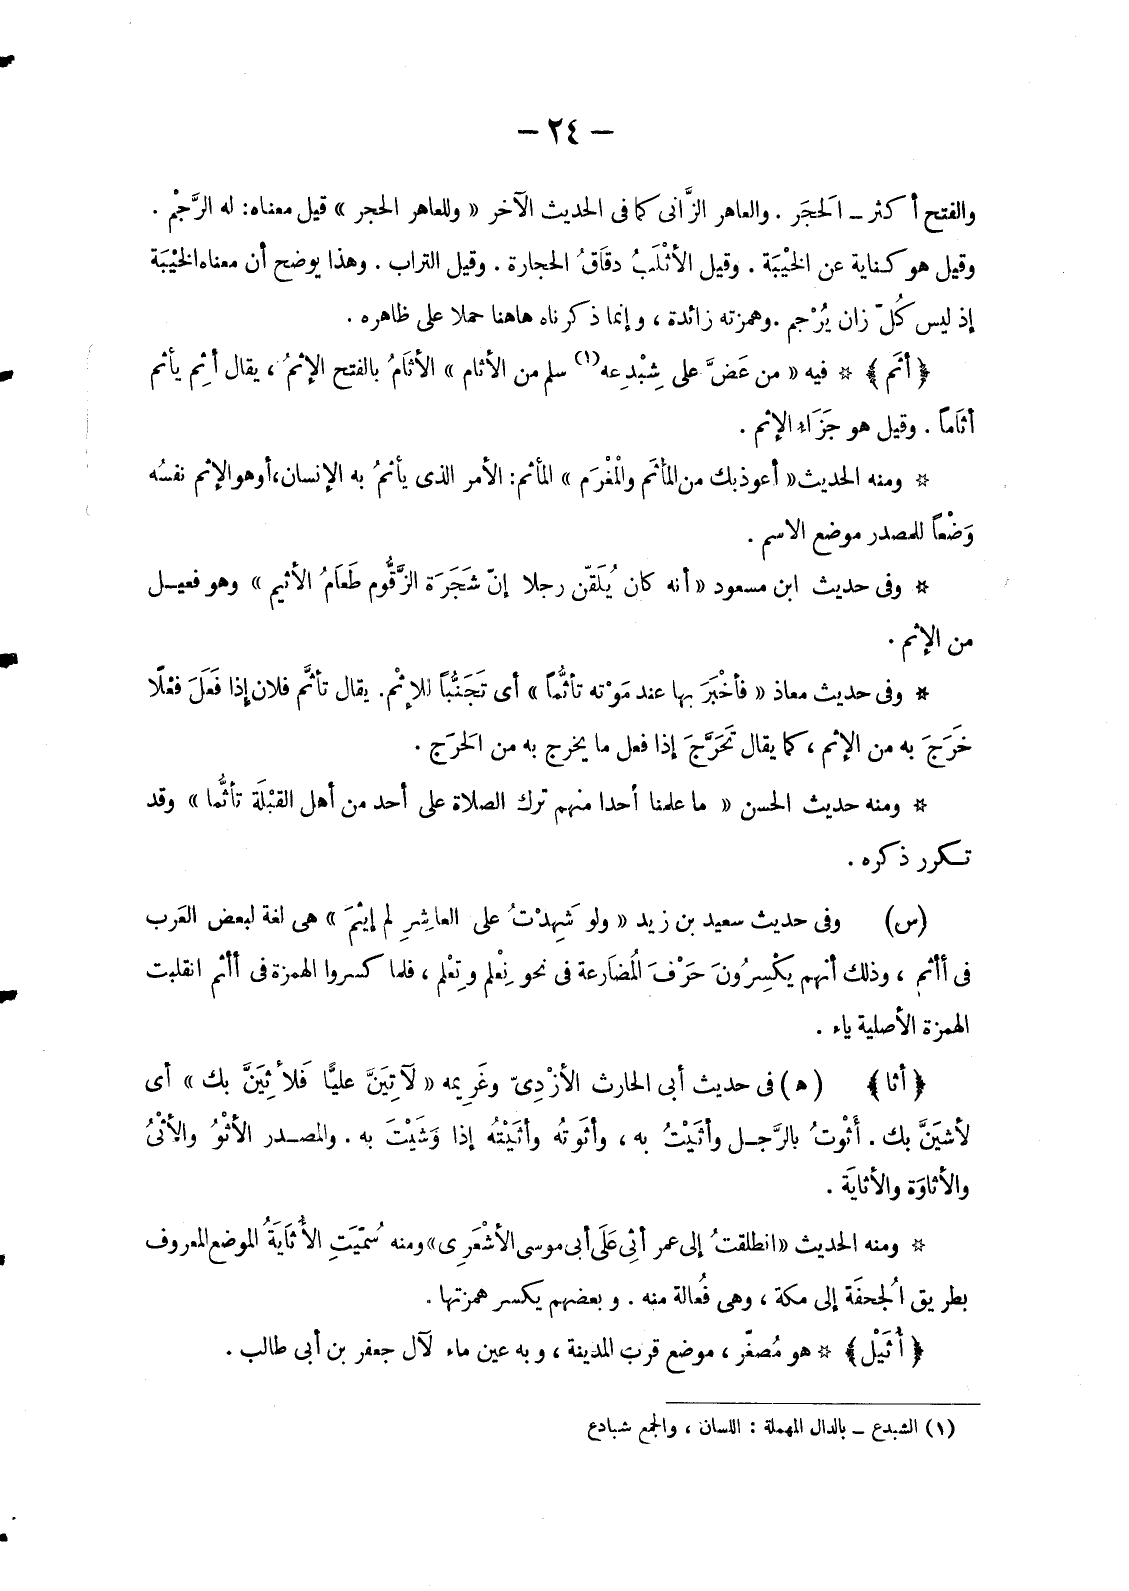 — ٢٤ —
والفتح أكثر ــ الَحجَر . والعاهر الزَّانى كما فى الحديث الآخر « وللعاهر الحجر » قيل معناه: له الرَّجْم .
وقيل هو كناية عن الخَيْبَة . وقيل الأثْلَبُ دقَاقُ الحجارة . وقيل التراب . وهذا يوضح أن معناه الخَيْبَة
إذ ليس كُلّ زان يُرْجم . وهمزته زائدة ، وإنما ذكرناه هاهنا حملا على ظاهره .
﴿ أثَم ﴾ * فيه « من عَضَّ على شِبْدِعه(١) سلم من الأثام » الأثَامُ بالفتح الإثمُ ، يقال أثِم يأثم
أثَاماً . وقيل هو جَزَاء الإثم .
* ومنه الحديث « أعوذ بك من المَأثَم والْمَغْرَم » المأثم: الأمر الذى يأثمُ به الإنسان، أو هو الإثم نفسُه
وَضْعاً للمصدر موضع الاسم .
* وفى حديث ابن مسعود « أنه كان يُلَقّن رجلا إنّ شَجَرَة الزَّقُّوم طَعَامُ الأثيم » وهو فعيل
من الإثم .
* وفى حديث معاذ « فأخْبَرَ بها عند مَوْته تأثُّماً » أى تَجَنُّباً للإثْم. يقال تأثَّم فلان إذا فَعَلَ فعْلًا
خَرَجَ به من الإثم ، كما يقال تَحَرَّجَ إذا فعل ما يخرج به من الَحرَج .
* ومنه حديث الحسن « ما علمنا أحدا منهم ترك الصلاة على أحد من أهل القبْلَة تأثُّما » وقد
تكرر ذكره .
(س) وفى حديث سعيد بن زيد « ولو شَهِدْتُ على العاشِرِ لم إيثمَ » هى لغة لبعض العَرب
فى أأثم ، وذلك أنهم يكْسِرُونَ حَرْفَ المُضَارعة فى نحو نِعْلم وتِعْلم ، فلما كسروا الهمزة فى أأثم انقلبت
الهمزة الأصلية ياء .
﴿ أثا ﴾ (هـ) فى حديث أبى الحارث الأزْدِىّ وغَرِيمه « لَآتِيَنَّ عليًّا فَلأَثِيَنَّ بك » أى
لأشيَنَّ بك . أَثَوْتُ بالرَّجل وأثَيْتُ به ، وأثَوتُه وأثَيْتُه إذا وَشَيْتَ به . والمصدر الأثْوُ والأثْىُ
والأثاوَة والأثايَة .
* ومنه الحديث « انطلقتُ إلى عمر أثِى عَلَى أبى موسى الأشْعَرِى » ومنه سُمّيَتِ الأُثَايَةُ الموضع المعروف
بطريق الُجحفَة إلى مكة ، وهى فُعالة منه . وبعضهم يكسر همزتها .
﴿ أُثَيْل ﴾ * هو مُصغّر ، موضع قرب المدينة ، وبه عين ماء لآل جعفر بن أبى طالب .
(١) الشبدع ــ بالدال المهملة : اللسان ، والجمع شبادع